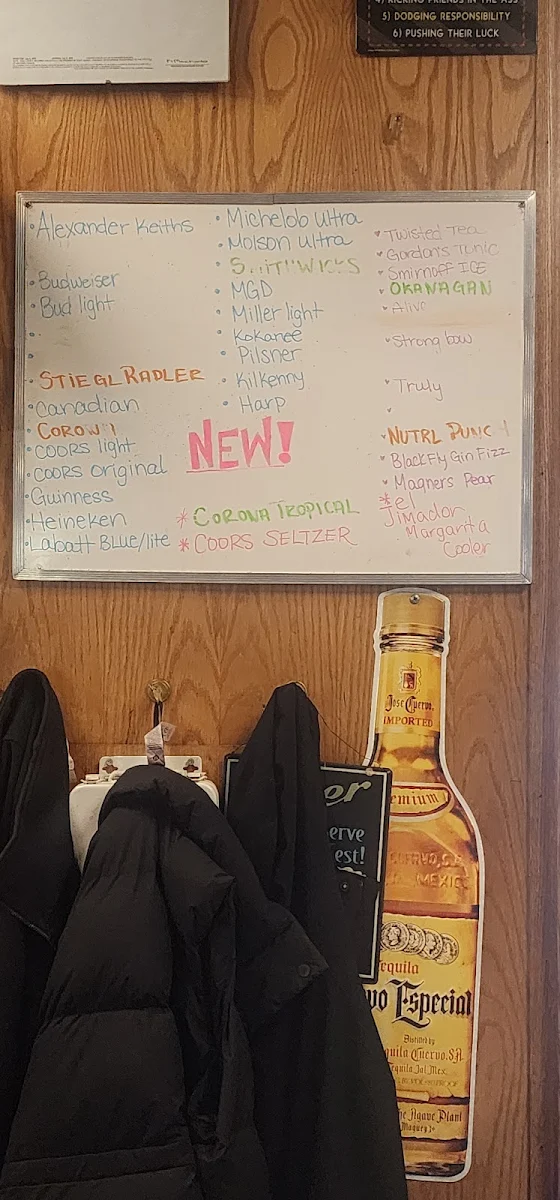 4) KICKING FRIENDS IN THE ASS
5) DODGING RESPONSIBILITY
6) PUSHING THEIR LUCK
Alexander Keiths
Budweiser
Bud light
STIEGL RADLER
Canadian
COORS light
COORS original
Guinness
Heineken
Labatt BLue/lite
Michelob ultra
Molson ultra
SMITHWICKS
MGD
Miller light
Kokanee
Pilsner
Kilkenny
Harp
NEW!
* CORONA TROPICAL
* COORS SELTZER
Twisted Tea
Gordons Tonic
Smirnoff ICE
OKANAGAN
Alive
Strongbow
Truly
NUTRL PUNCH
BlackFly Gin Fizz
Magners Pear
*el
Jimador
Margarita
Cooler
Jose Cuervo
IMPORTED
emium
CUERVO, S.A.
MEXIC
or
erve
est!
equila
vo Especial
Distilled by
quila Cuervo, S.A.
equila Jal. Mex.
he Agave Plant